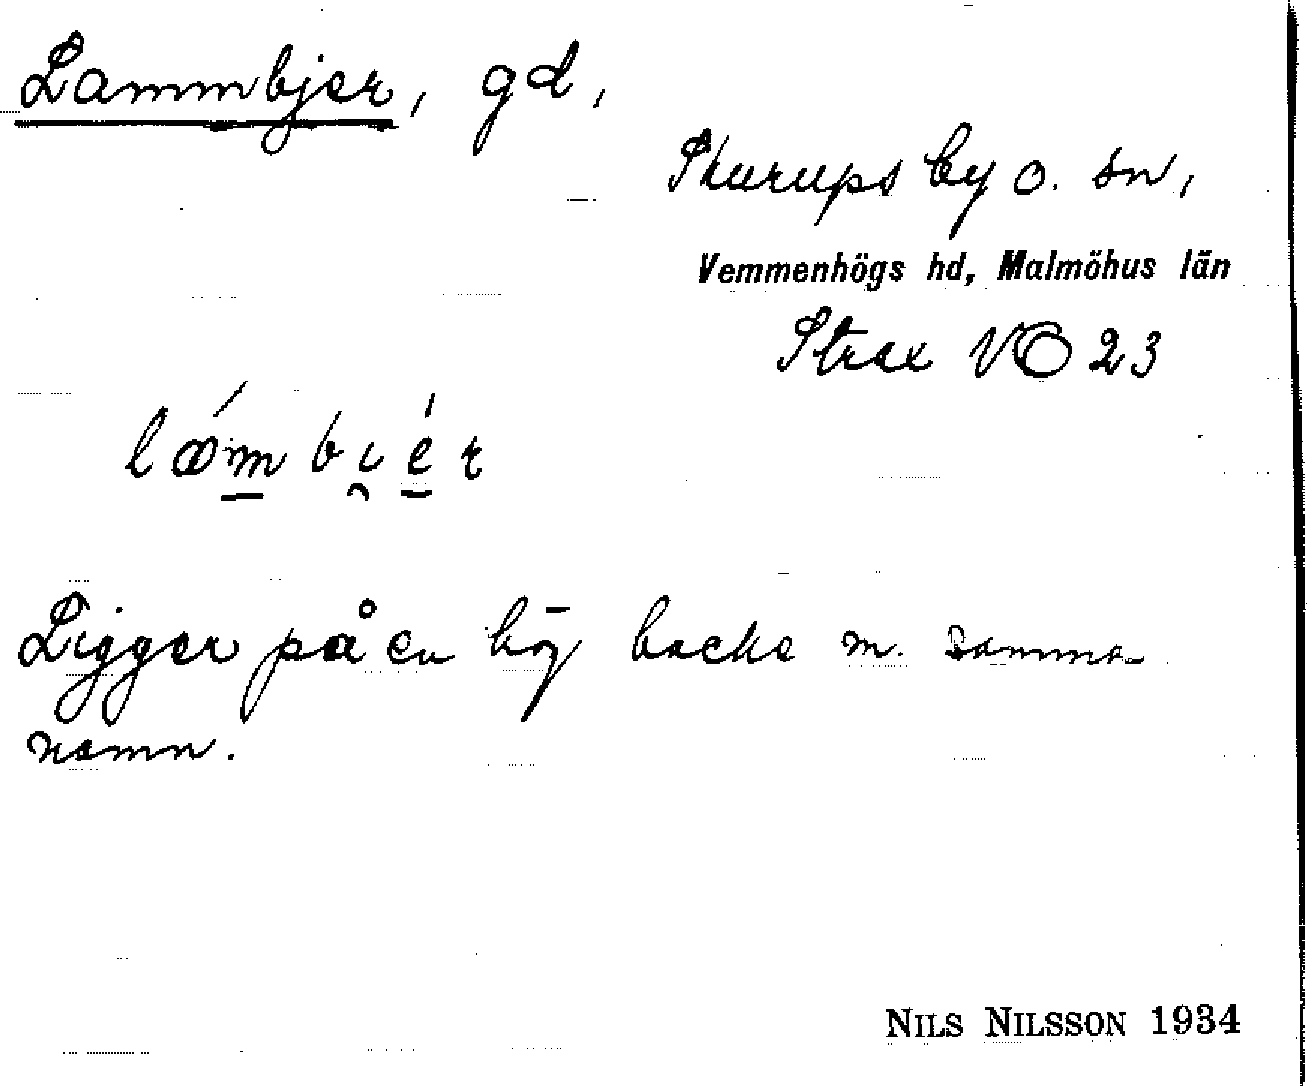 Lammbjer, gd,
Skurups by o. sn,
Vemmenhögs hd, Malmöhus län
Strax V 23
Ligger på en hög backe m. samma
namn.
NILS NILSSON 1934